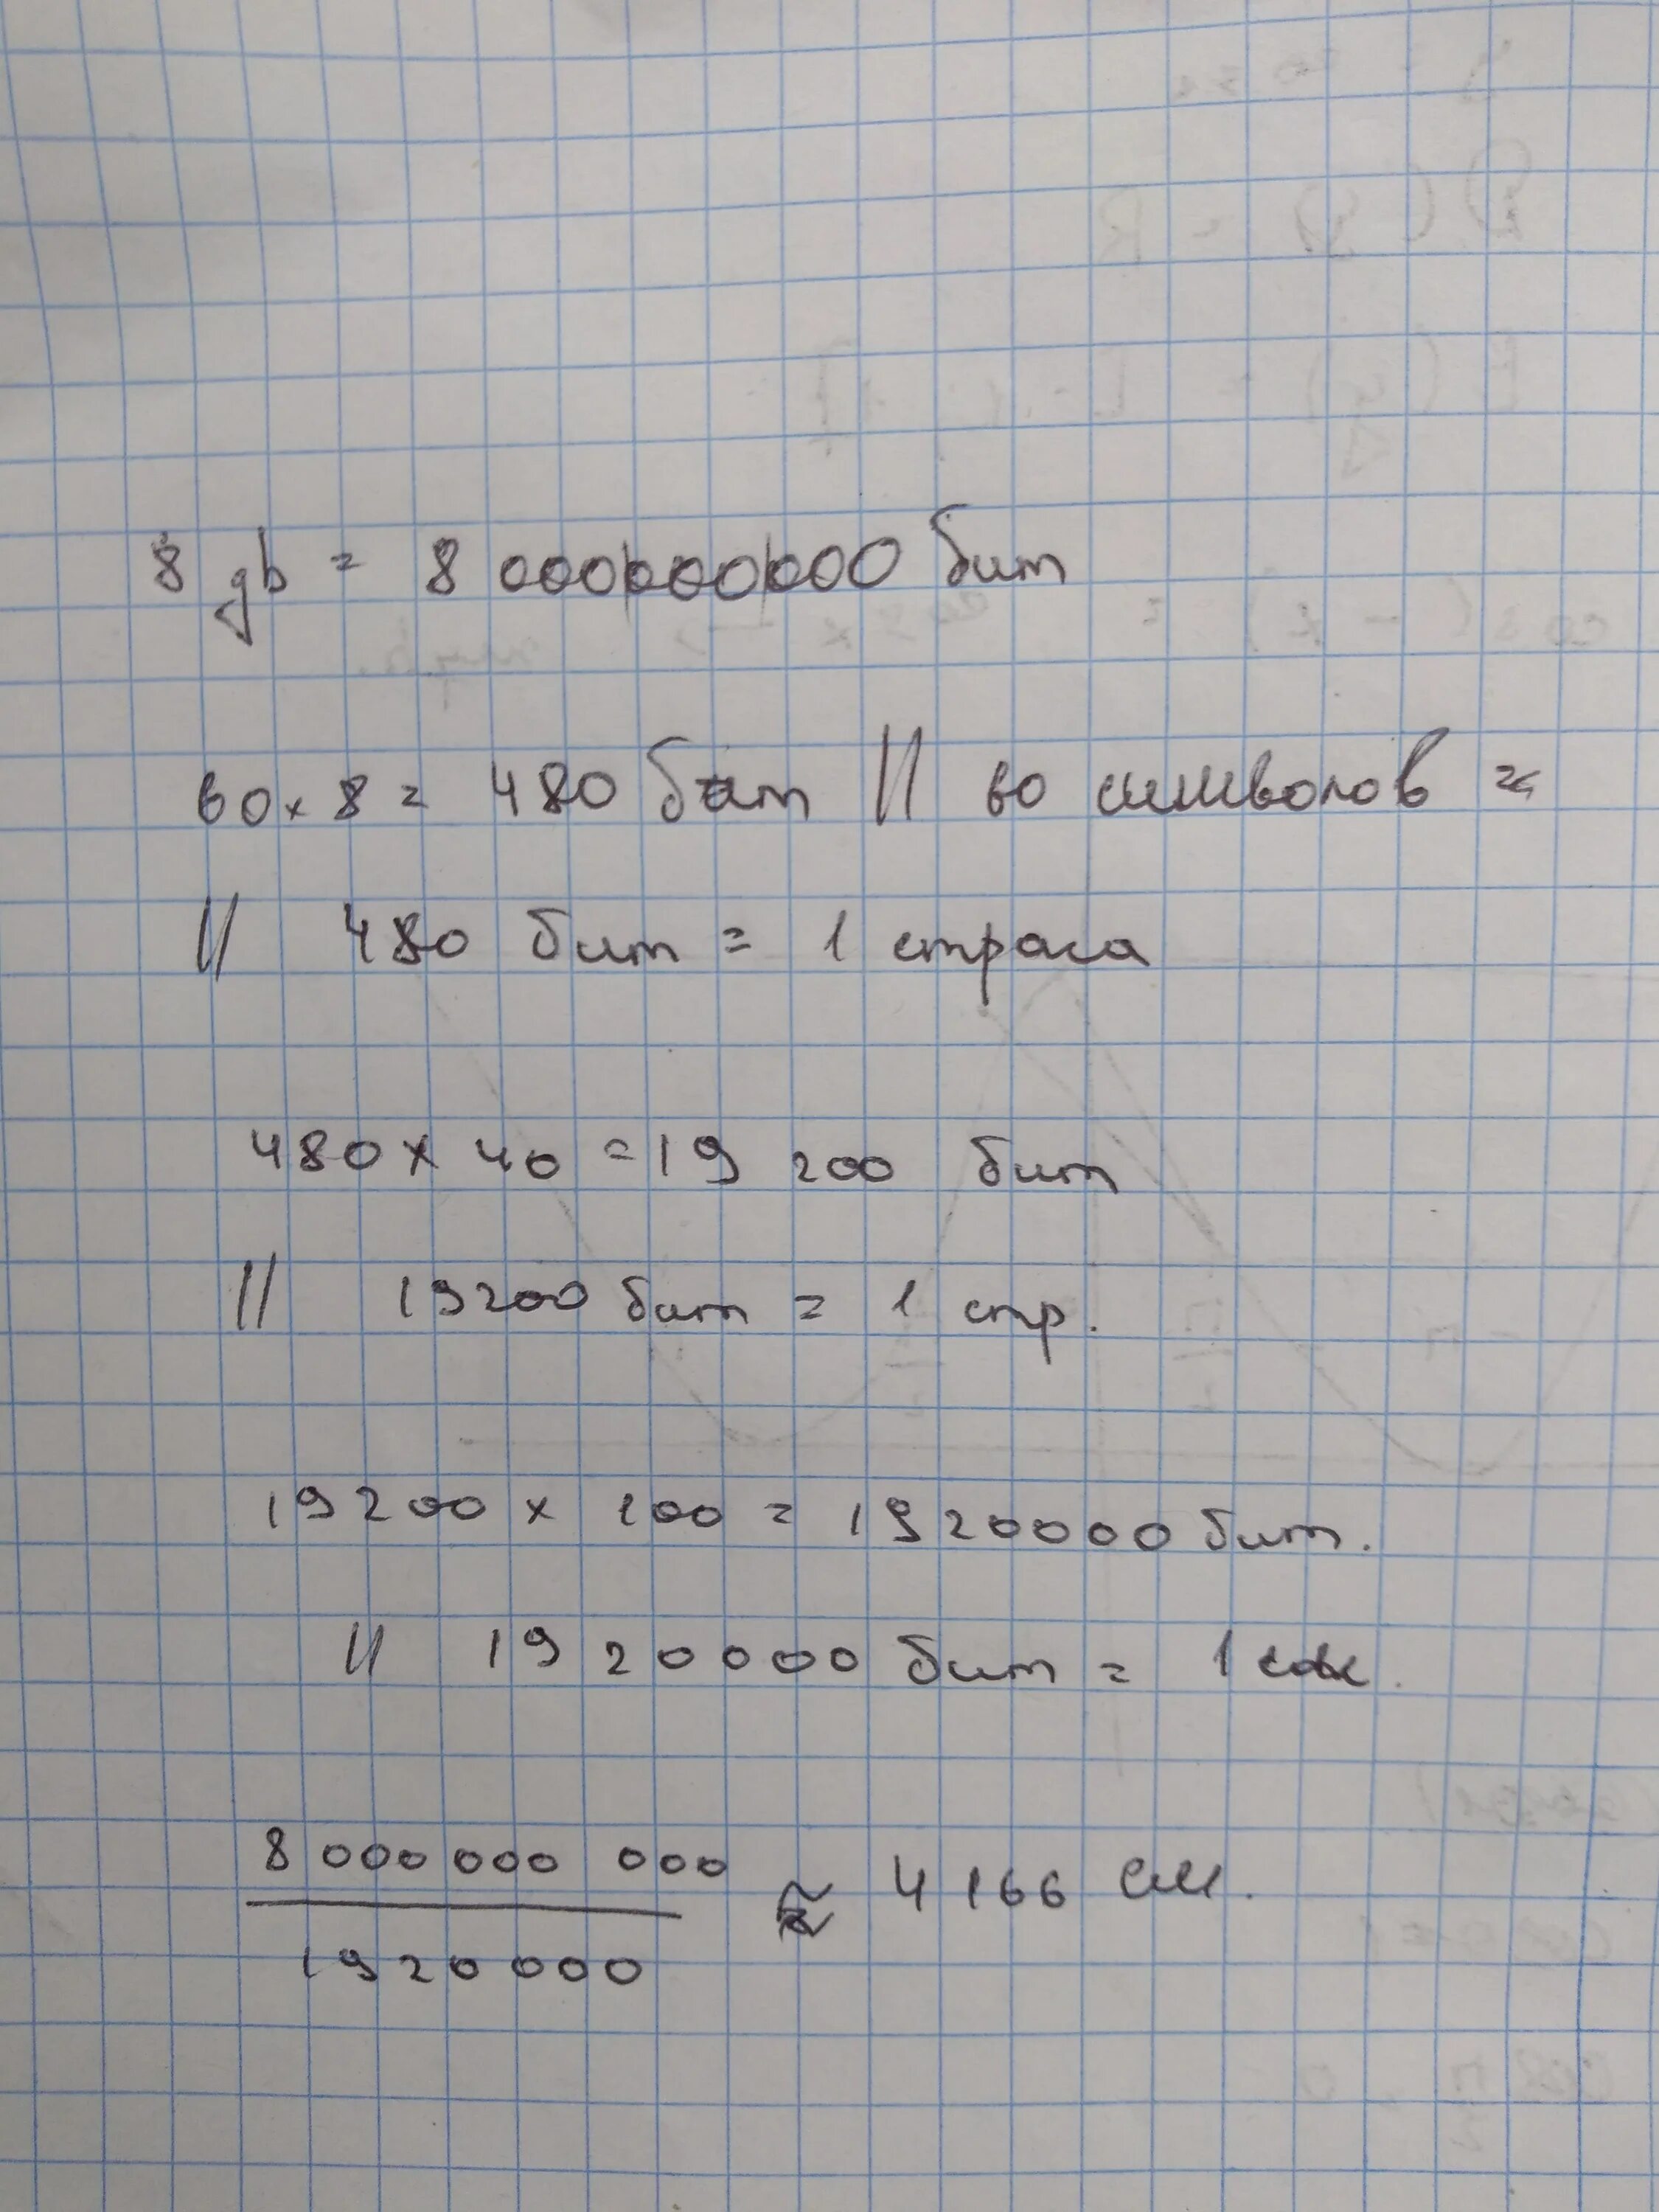 8 gb = 8 000000000 бит
60 x 8 = 480 бит // 60 символов =
// 480 бит = 1 страса
480 x 40 = 19 200 бит
// 19200 бит = 1 стр.
19200 x 100 = 1920000 бит.
// 1920000 бит = 1 см.
8 000 000 000
≈ 4166 см.
1920 000